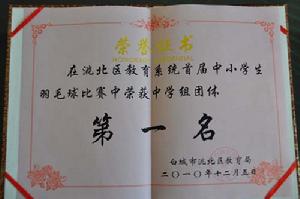 荣誉证书
在洮北区教育系统首届中小学生
羽毛球比赛中荣获中学组团体
第一名
白城市洮北区教育局
二〇一〇年十二月五日